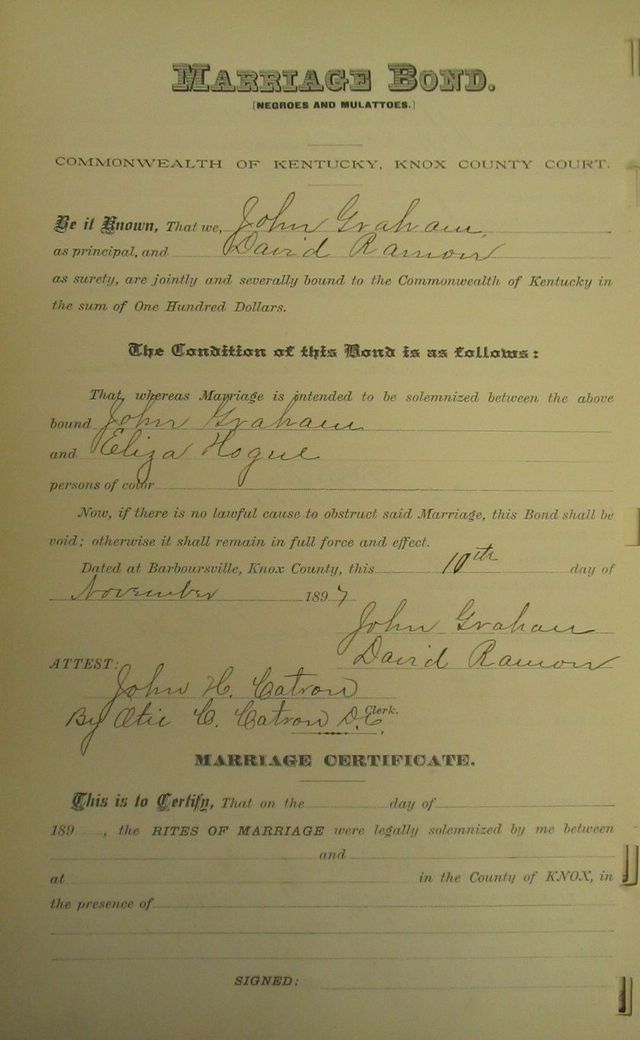 MARRIAGE BOND.
[NEGROES AND MULATTOES.]
COMMONWEALTH OF KENTUCKY, KNOX COUNTY COURT.
Be it Known, That we, John Graham,
as principal, and David Ramon
as surety, are jointly and severally bound to the Commonwealth of Kentucky in
the sum of One Hundred Dollars.
The Condition of this Bond is as follows:
That, whereas Marriage is intended to be solemnized between the above
bound John Graham
and Eliza Hogue
persons of color
Now, if there is no lawful cause to obstruct said Marriage, this Bond shall be
void; otherwise it shall remain in full force and effect.
Dated at Barboursville, Knox County, this 10th day of
November 1897
John Graham
David Ramon
ATTEST:
John H. Catron
Clerk.
By Otie C. Catron D.C.
MARRIAGE CERTIFICATE.
This is to Certify, That on the day of
189 , the RITES OF MARRIAGE were legally solemnized by me between
and
at in the County of KNOX, in
the presence of
SIGNED: